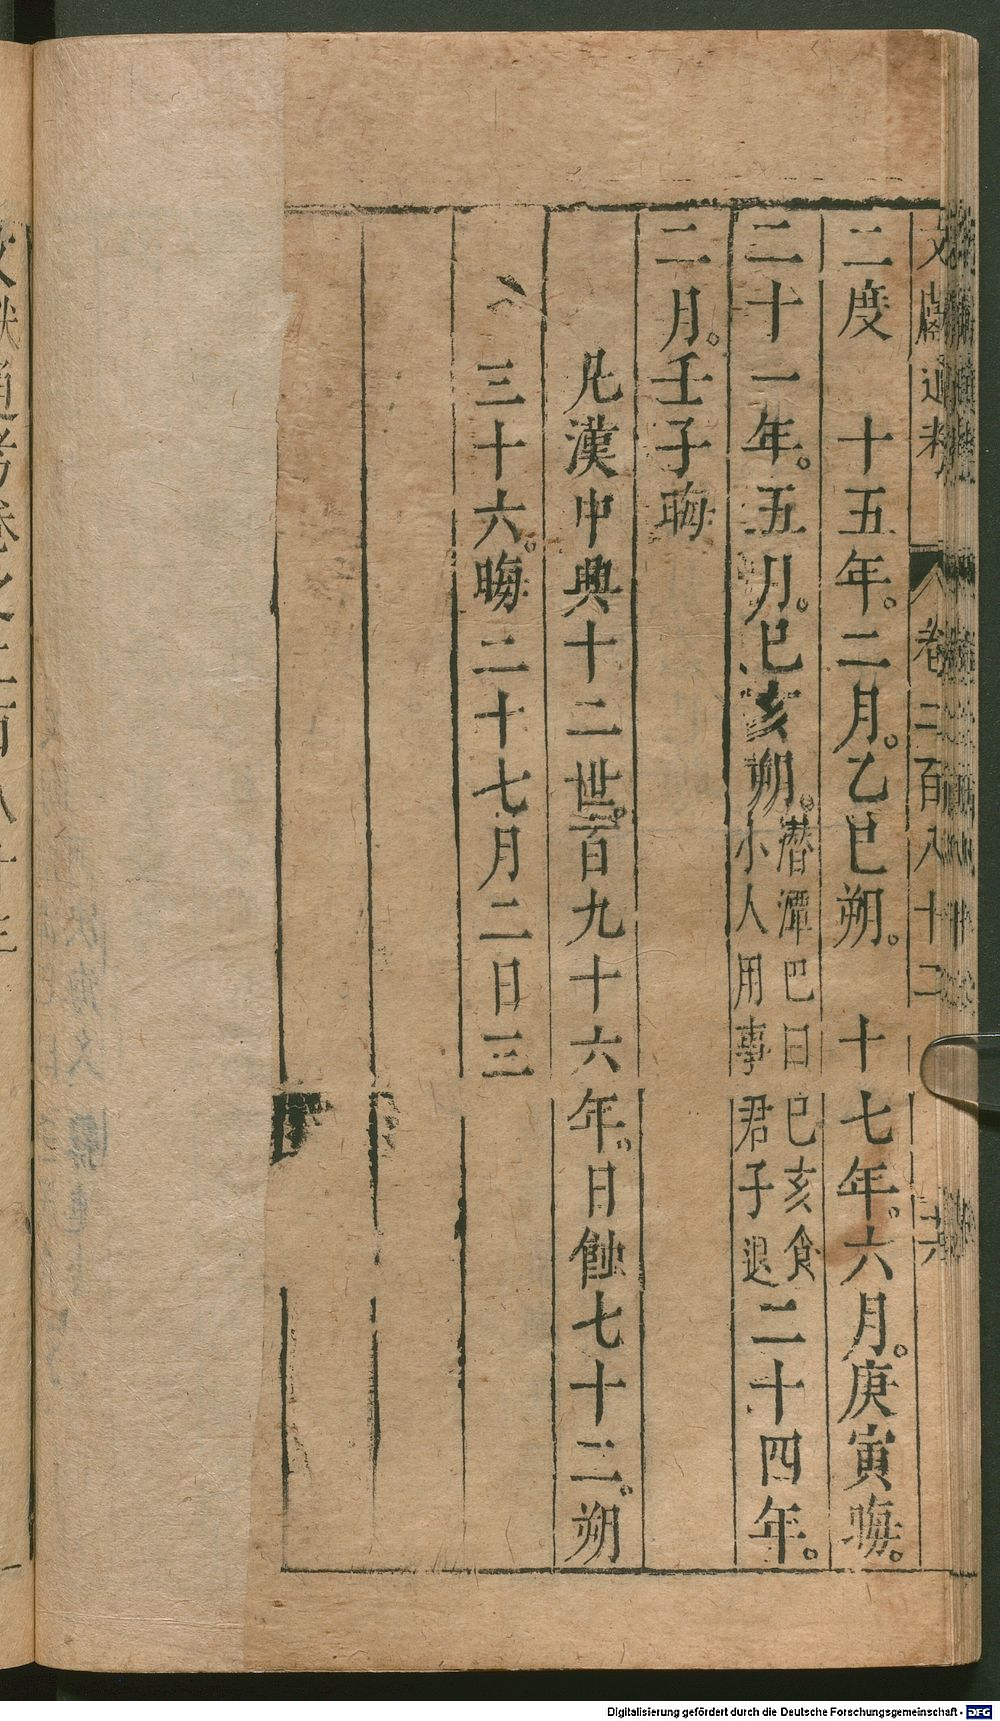 文獻通考 卷二百八十二
二度　十五年。二月。乙巳朔。　十七年。六月。庚寅晦。
二十一年。五月。己亥朔。潛潭巴曰己亥食小人用事君子退二十四年。
二月。壬子晦
凡漢中興十二世。百九十六年。日蝕七十二。朔
三十六。晦二十七月二日三
文獻通考卷之二百八十三
Digitalisierung gefördert durch die Deutsche Forschungsgemeinschaft - DFG